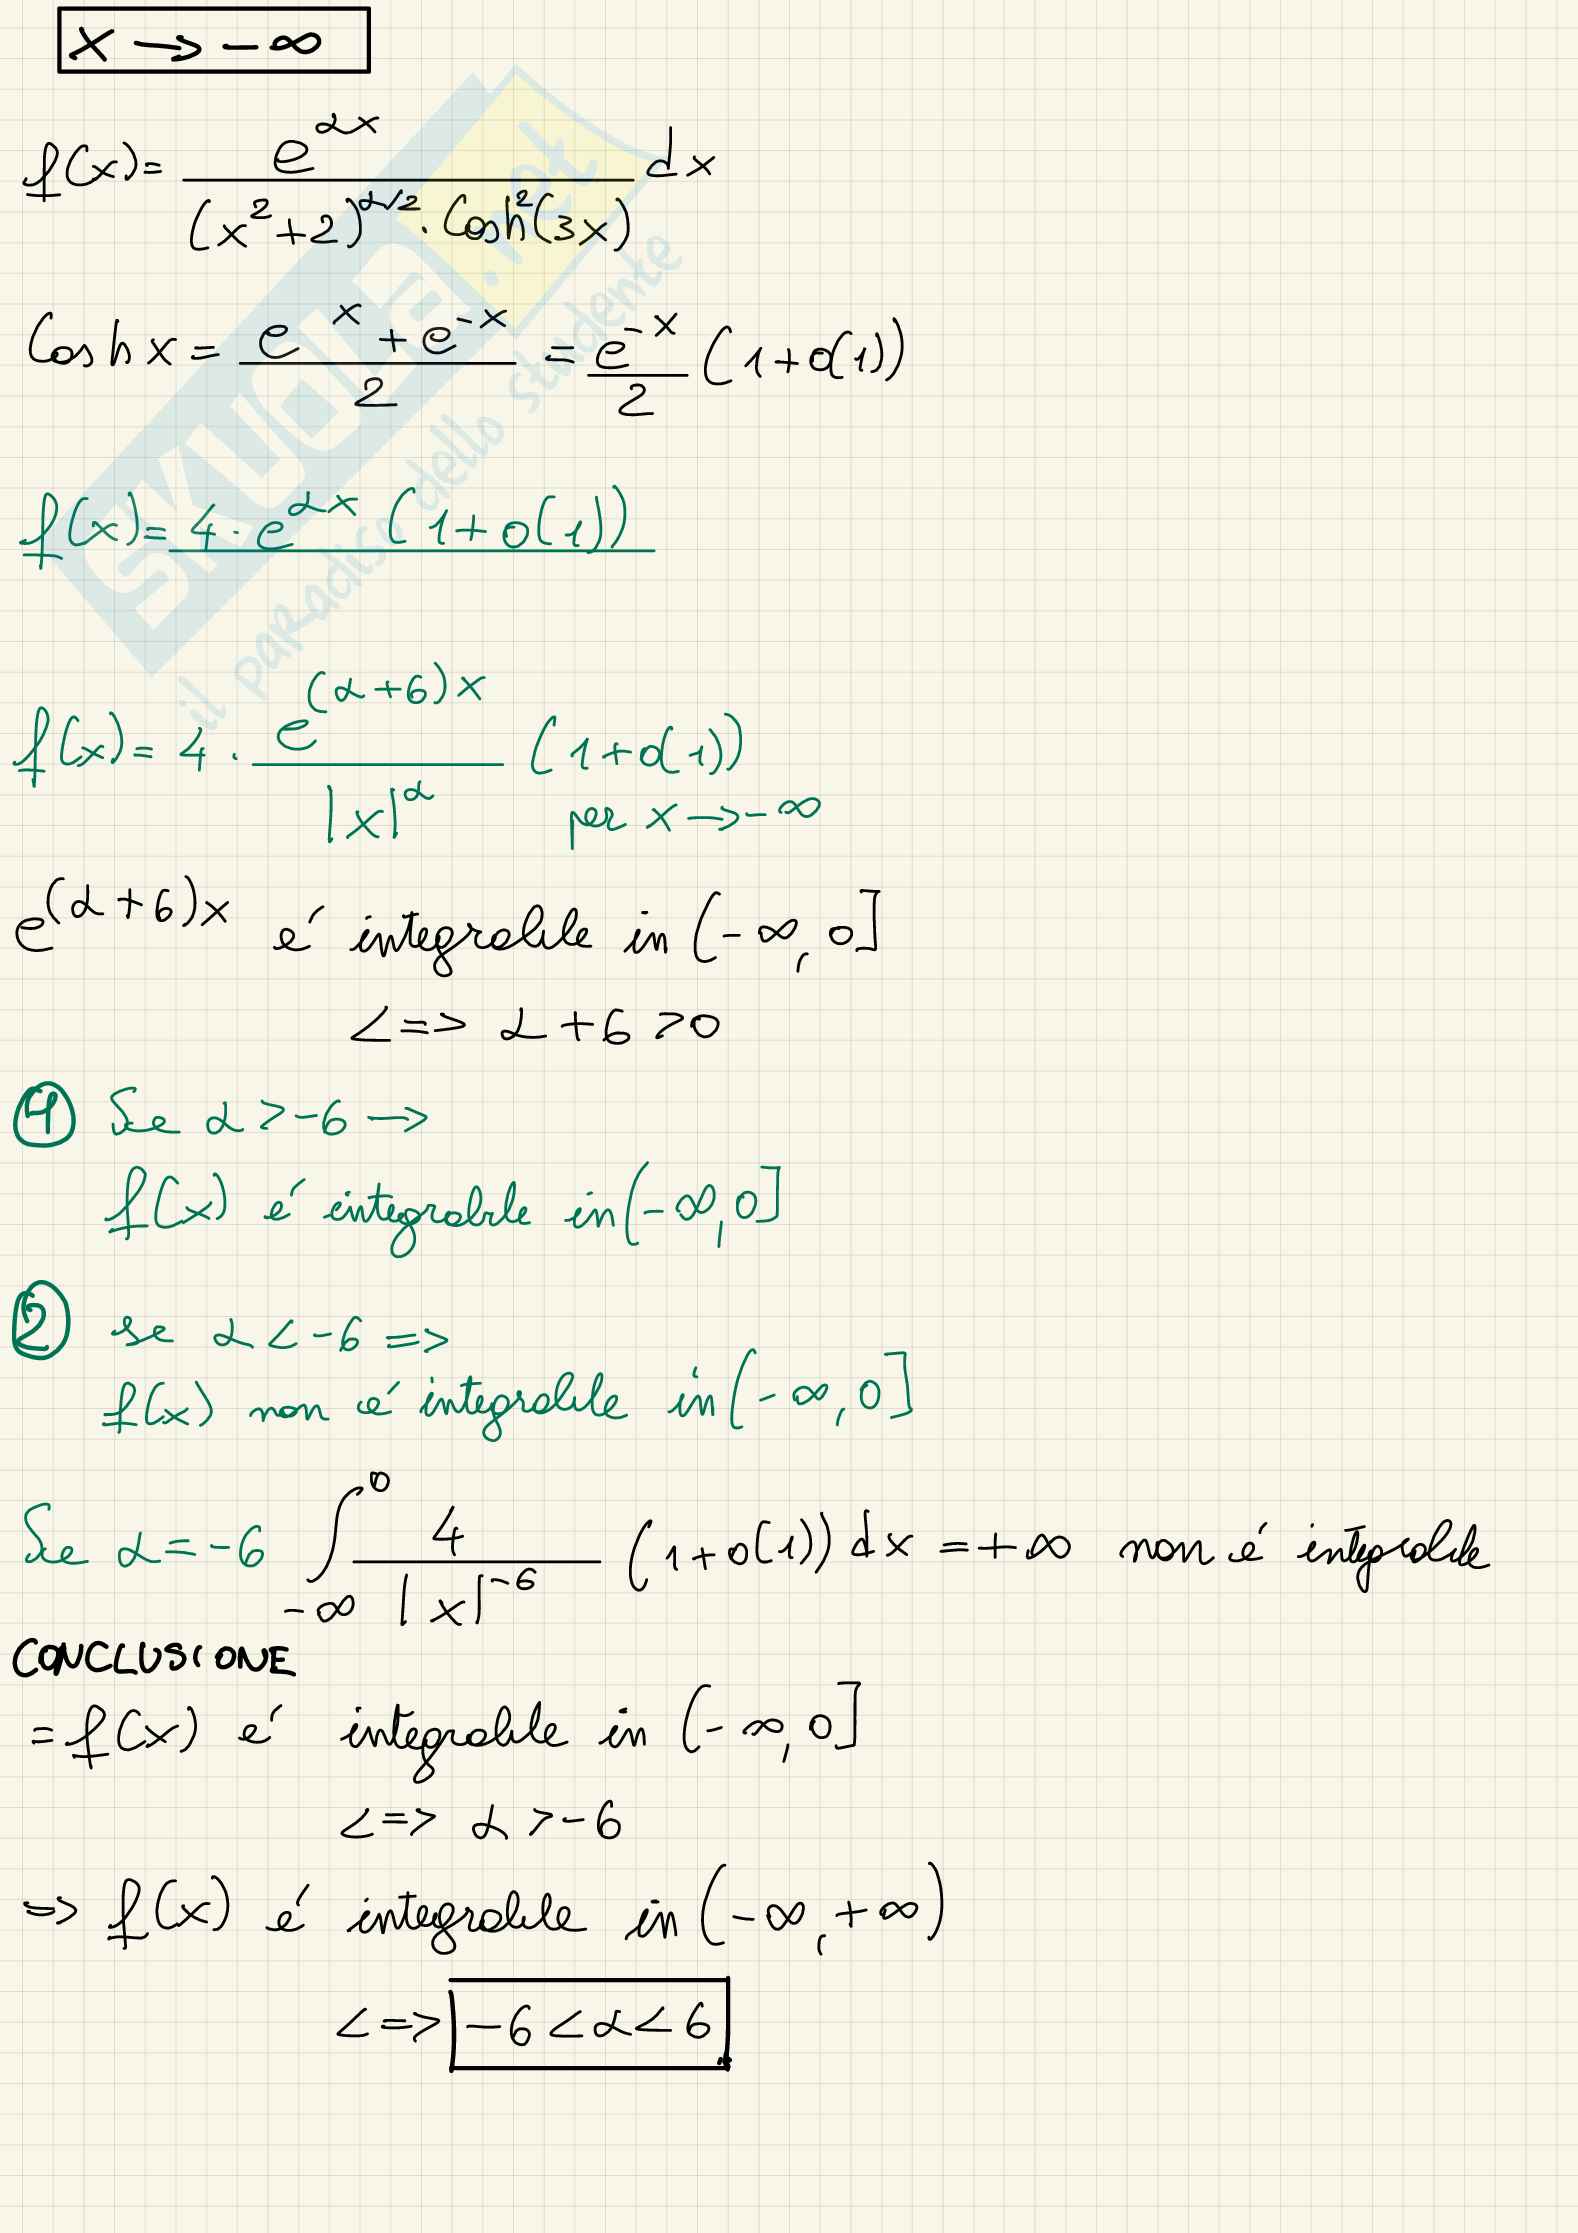 x → -∞
f(x) = e^{αx} / ((x²+2)^{α/2} · Cosh²(3x)) dx
Cosh x = (e^x + e^{-x}) / 2 = e^{-x}/2 (1+o(1))
f(x) = 4 · e^{αx} (1+o(1))
f(x) = 4 · e^{(α+6)x} / |x|^α (1+o(1))
per x → -∞
e^{(α+6)x} é integrabile in (-∞, 0]
<=> α+6 >0
① Se α > -6 →
f(x) é integrabile in (-∞, 0]
② se α < -6 =>
f(x) non é integrabile in (-∞, 0]
Se α = -6 ∫_{-∞}^{0} 4 / |x|^{-6} (1+o(1)) dx = +∞ non é integrabile
CONCLUSIONE
= f(x) é integrabile in (-∞, 0]
<=> α > -6
=> f(x) é integrabile in (-∞, +∞)
<=> -6 < α < 6
SKUOLA.net
il paradiso dello studente